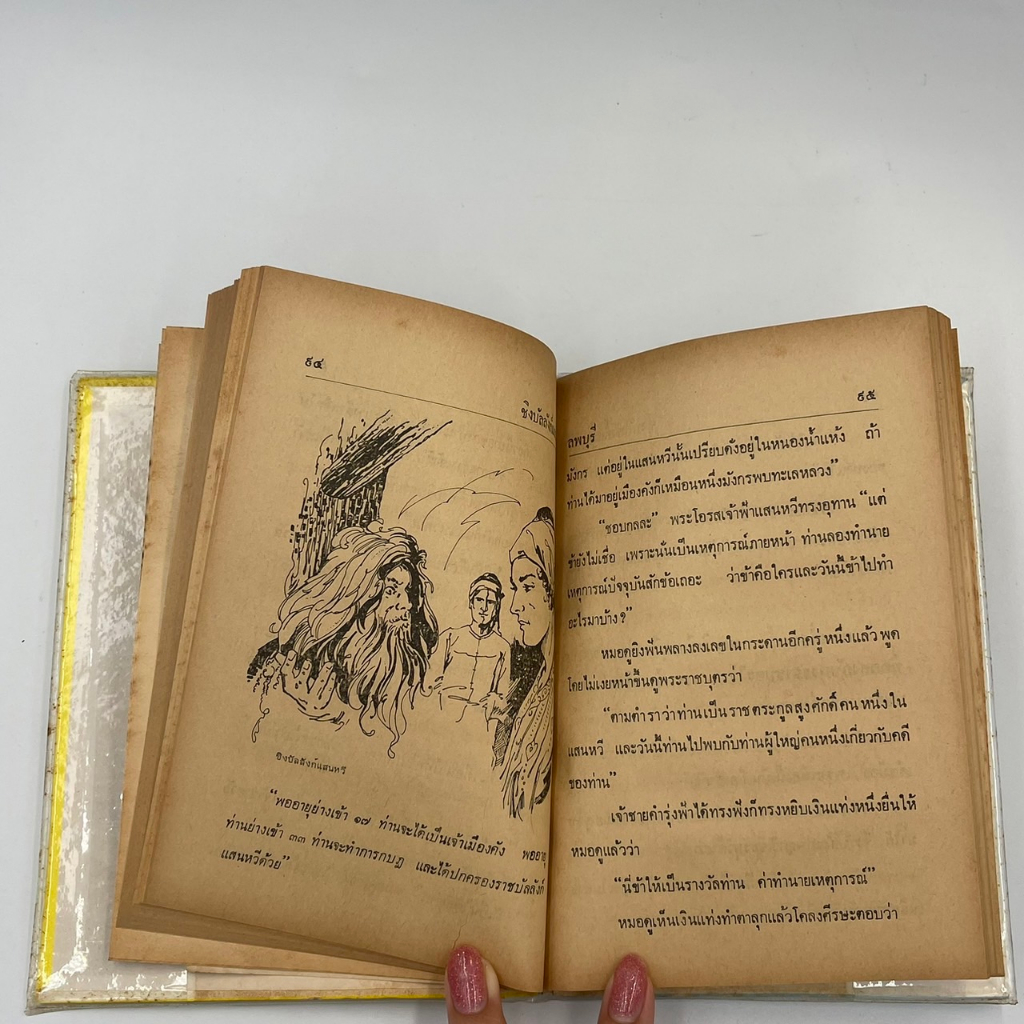 ๔๔
ชิงบัลลังก์
ชิงบัลลังก์แสนหวี
“พออายุย่างเข้า ๑๗ ท่านจะได้เป็นเจ้าเมืองคัง พออายุ
ท่านย่างเข้า ๓๓ ท่านจะทำการกบฏ และได้ปกครองราชบัลลังก์
แสนหวีด้วย”
ลพบุรี
๔๕
มังกร แต่อยู่ในแสนหวีนั้นเปรียบดั่งอยู่ในหนองน้ำแห้ง ถ้า
ท่านได้มาอยู่เมืองคังก็เหมือนหนึ่งมังกรพบทะเลหลวง”
“ชอบกลละ” พระโอรสเจ้าฟ้าแสนหวีทรงอุทาน “แต่
ข้ายังไม่เชื่อ เพราะนั่นเป็นเหตุการณ์ภายหน้า ท่านลองทำนาย
เหตุการณ์ปัจจุบันสักข้อเถอะ ว่าข้าคือใครและวันนี้ข้าไปทำ
อะไรมาบ้าง ?”
หมอดูยิงฟันพลางลงเลขในกระดานอีกครู่หนึ่งแล้วพูด
โดยไม่เงยหน้าขึ้นดูพระราชบุตรว่า
“ตามตำราว่าท่านเป็นราชตระกูลสูงศักดิ์คนหนึ่งใน
แสนหวี และวันนี้ท่านไปพบกับท่านผู้ใหญ่คนหนึ่งเกี่ยวกับคดี
ของท่าน”
เจ้าชายคำรุ่งฟ้าได้ทรงฟังก็ทรงหยิบเงินแท่งหนึ่งยื่นให้
หมอดูแล้วว่า
“นี่ข้าให้เป็นรางวัลท่าน ค่าทำนายเหตุการณ์”
หมอดูเห็นเงินแท่งทำตาลุกแล้วโคลงศีรษะตอบว่า